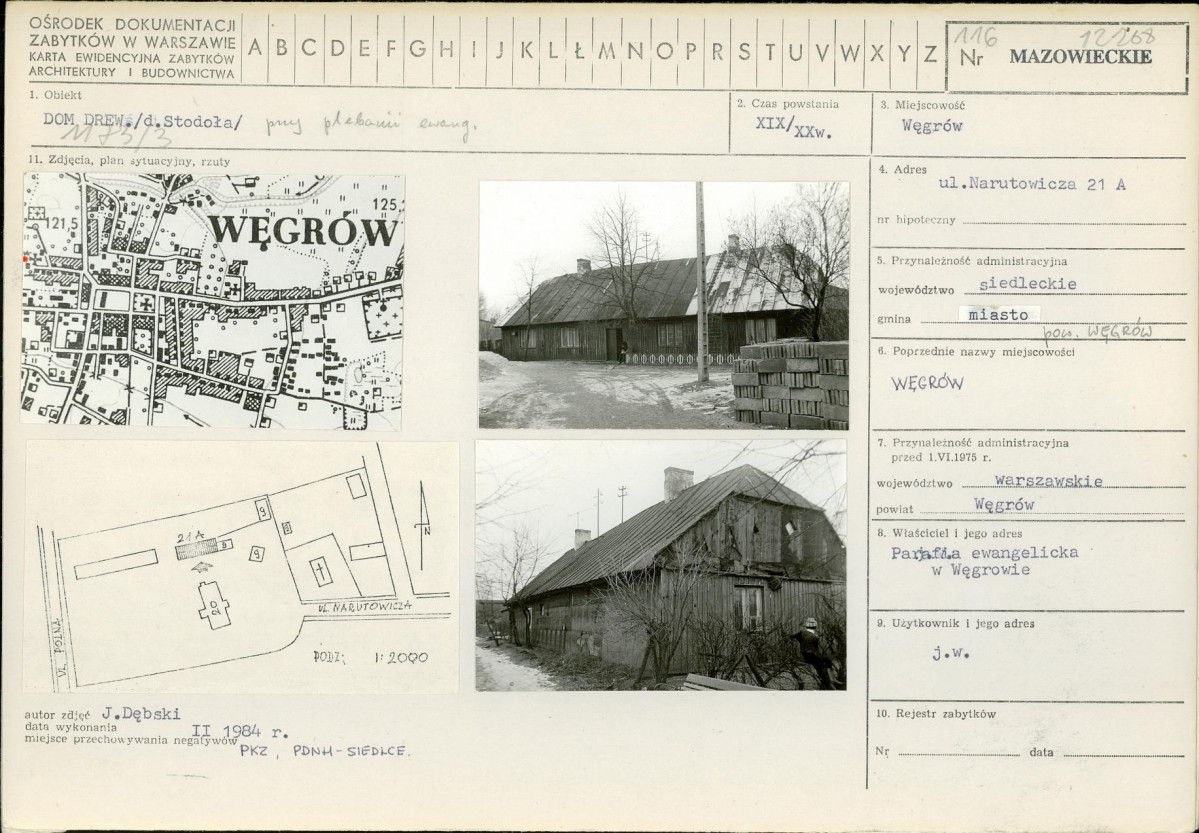 OŚRODEK DOKUMENTACJI
ZABYTKÓW W WARSZAWIE
KARTA EWIDENCYJNA ZABYTKÓW
ARCHITEKTURY I BUDOWNICTWA
A B C D E F G H I J K L Ł M N O P R S T U V W X Y Z
116
12268
Nr MAZOWIECKIE
1. Obiekt
DOM DREW./d.Stodoła/ przy plebanii ewang.
1183/3
2. Czas powstania
XIX/XXw.
3. Miejscowość
Węgrów
11. Zdjęcia, plan sytuacyjny, rzuty
121,5
125,
WĘGRÓW
21A
9
9
9
9
20
UL. POLNA
UL. NARUTOWICZA
N
PODZ; 1:2000
autor zdjęć J.Dębski
data wykonania II 1984 r.
miejsce przechowywania negatywów PKZ, PDNH-SIEDLCE.
4. Adres
ul.Narutowicza 21 A
nr hipoteczny
5. Przynależność administracyjna
województwo siedleckie
gmina miasto
pow. WĘGRÓW
6. Poprzednie nazwy miejscowości
WĘGRÓW
7. Przynależność administracyjna
przed 1.VI.1975 r.
województwo warszawskie
powiat Węgrów
8. Właściciel i jego adres
Parafia ewangelicka
w Węgrowie
9. Użytkownik i jego adres
j.w.
10. Rejestr zabytków
Nr data